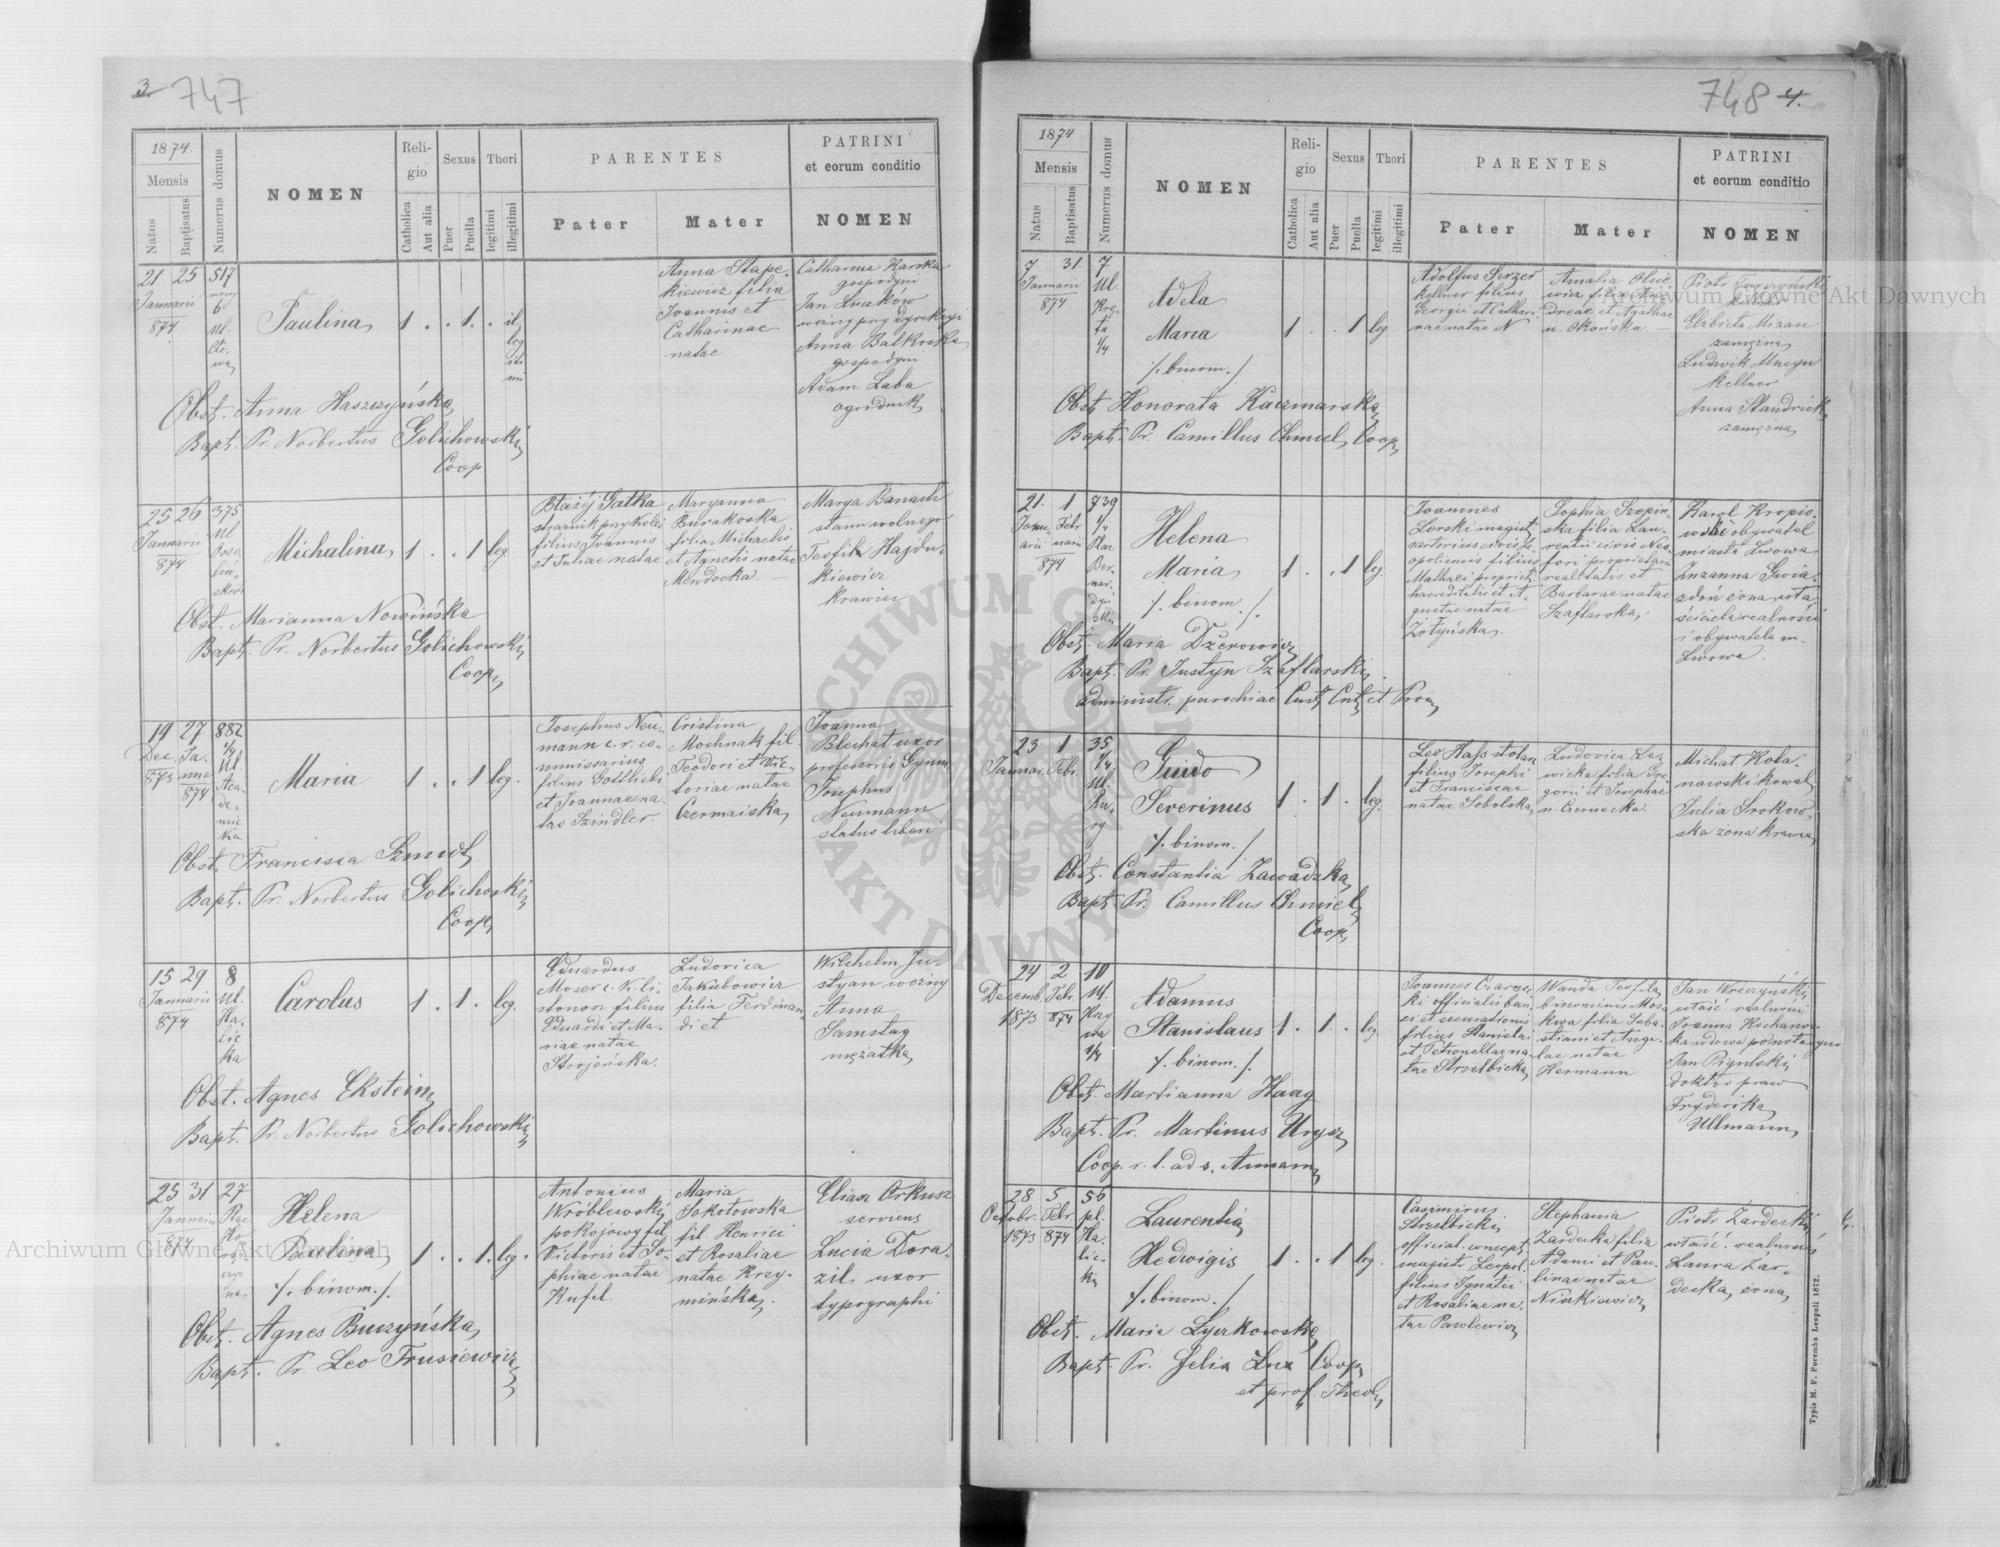 3.
747
1874.
Mensis
Natus
Baptisatus
Numerus domus
NOMEN
Reli-
gio
Catholica
Aut alia
Sexus
Puer
Puella
Thori
legitimi
illegitimi
PARENTES
Pater
Mater
PATRINI
et eorum conditio
NOMEN
21 25 517
Januarii
874
Paulina
1 . . 1 .
Anna Stape-
kiewicz filia
Joannis et
Catharinae
natae
Catharina Karska
gospodyni
Jan Luców
woźny przy dyrekcyi
Anna Balkoska
gospodyni
Adam Laba
ogrodnik
Obst. Anna Haszczyńska
Bapt. Pr. Norbertus Golichowski
Coop
25 26 375
Januarii
874
Ul
Osso-
liń-
skich
Michalina
1 . . 1 leg
Błażéj Gałka
strażnik przy kolei
filius Joannis
et Juliae natae
Maryanna
Burakoska
filia Michaelis
et Agnetis natae
Mendocka
Marya Banach
stanu wolnego
Teofil Hajdu-
kiewicz
krawiec
Obst. Marianna Nowińska
Bapt. Pr. Norbertus Golichowski
Coop
19 27 882
Dec. Ja-
873 nua
874
1/4
Ul
Aca-
de-
mic
ka
Maria
1 . . 1 leg.
Josephus Neu-
mann c. r. co-
mmissarius
filius Gottliebi
et Joannae na-
tae Szindler.
Cristina
Mochnak fil.
Teodori et Vic-
toriae natae
Czermaiska
Joanna
Blechat uxor
professoris Gymn.
Josephus
Neumann
status liberi
Obst. Francisca Szmidt
Bapt. Pr. Norbertus Golichoski
Coop
15 29 8
Januarii
874
Ul.
Ha-
lic
ka
Carolus
1 . 1 . leg.
Eduardus
Moser c. k. li-
stonosz filius
Eduardi et Ma-
riae natae
Strojeńska.
Ludovica
Jakubowicz
filia Ferdinan-
di et
Wilhelm Ju-
styan woźny
Anna
Samstag
mężatka
Obst. Agnes Ekstein
Bapt. Pr. Norbertus Golichowski
25 31 27
Januarii
874
Helena
Paulina
/. binom. /.
1 . . 1 . leg.
Antonius
Wróblewski
pokojowy fil.
Victoris et So-
phiae natae
Kufel.
Maria
Sokołowska
fil. Henrici
et Rosaliae
natae Krzy-
mińska.
Elias Arkusz
serviens
Lucia Dora-
zil, uxor
typographi
Obst. Agnes Buczyńska
Bapt. Pr. Leo Trusiewicz
748 4.
1874
Mensis
Natus
Baptisatus
Numerus domus
NOMEN
Reli-
gio
Catholica
Aut alia
Sexus
Puer
Puella
Thori
legitimi
illegitimi
PARENTES
Pater
Mater
PATRINI
et eorum conditio
NOMEN
7 31. 7
Januarii
874
Ul.
1/4
Adela
Maria
/. binom. /
1 . . 1 leg
Adolfus Serzer
kellner filius
Georgii et Cathari-
nae natae N
Amalia Olsie-
wicz filia An-
dreae et Agathae
n. Okońska
Piotr
Elżbieta Mizan
zamężna
Ludwik
kellner
Anna Standrick
zamężna
Obst. Honorata Kaczmarska
Bapt. Pr. Camillus Chmiel Coop
21. 1 739
Janu- Febr
arii uarii
874
1/4
Ber-
nar-
dyń
Helena
Maria
/. binom. /.
1 . . 1 leg.
Joannes
Lerski magist.
sartorius civis Le-
opoliensis filius
Mathaei propriet.
haereditatis et A-
gnetae natae
Żołyńska.
Sophia Szopiń-
ska filia Lau-
rentii civis Neo-
fori proprietarii
realitatis et
Barbarae natae
Szaflarska.
Karol Kropio-
wski obywatel
miasta Lwowa
Zuzanna Gwia-
zdoń żona wła
ściciela realności
i obywatela m.
Lwowa.
Obst. Maria Dżerowicz
Bapt. Pr. Justyn Szaflarski
administr. parochiae Cust. et Prov.
23 1 35
Januar. Febr.
1/4
Ul.
Ru-
ry
Guido
Severinus
/. binom. /.
1 . 1 . leg.
Leo Hass stolarz
filius Josephi
et Franciscae
natae Sobolska
Ludovica Lez-
wicka filia Gre-
gorii et Josephae
n. Czernecka.
Michał Kola-
nawski kowal
Julia Srokow-
ska żona krawca
Obst. Constantia Zawadzka
Bapt. Pr. Camillus Chmiel
Coop.
24 2 10
Decemb. Febr.
1873 874
Ul.
Krzy
wa
1/4
Adamus
Stanislaus
/. binom. /.
1 . 1 . . leg.
Joannes Czarnec-
ki officialis ban-
ci et securationis
filius Stanislai
et Petronellae na-
tae Strzelbicka
Wanda Teofila
binominis Mos-
kwa filia Seba-
stiani et Ange-
lae natae
Hermann
Jan Wreczyński
właść. realności
Joanna Kochanow-
ka wdowa po notaryuszu
Jan Pigulski
doktor praw
Fryderika
Ullmann
Obst. Martianna Haag
Bapt. Pr. Martinus Urysz
Coop. r. l. ad s. Annam
28 5 56
Octobr. Febr.
1873 874
pl.
Ha-
lic-
ki
Laurentia
Hedwigis
/. binom. /
1 . . 1 leg.
Casimirus
Strzelbicki
official. concept.
magistr. Leopol.
filius Ignatii
et Rosaliae na-
tae Pawlewicz
Stephania
Zardecka filia
Adami et Pau-
linae natae
Ninkiewicz
Piotr Żardecki
właść. realności
Laura Żar-
decka, żona
Obst. Maria Lyczkowska
Bapt. Pr. Felix Lux Coop.
et prof. Theol.
Typis M. F. Poremba Leopoli 1872.
Archiwum Główne Akt Dawnych
Archiwum Główne Akt Dawnych
ARCHIWUM GŁÓWNE AKT DAWNYCH